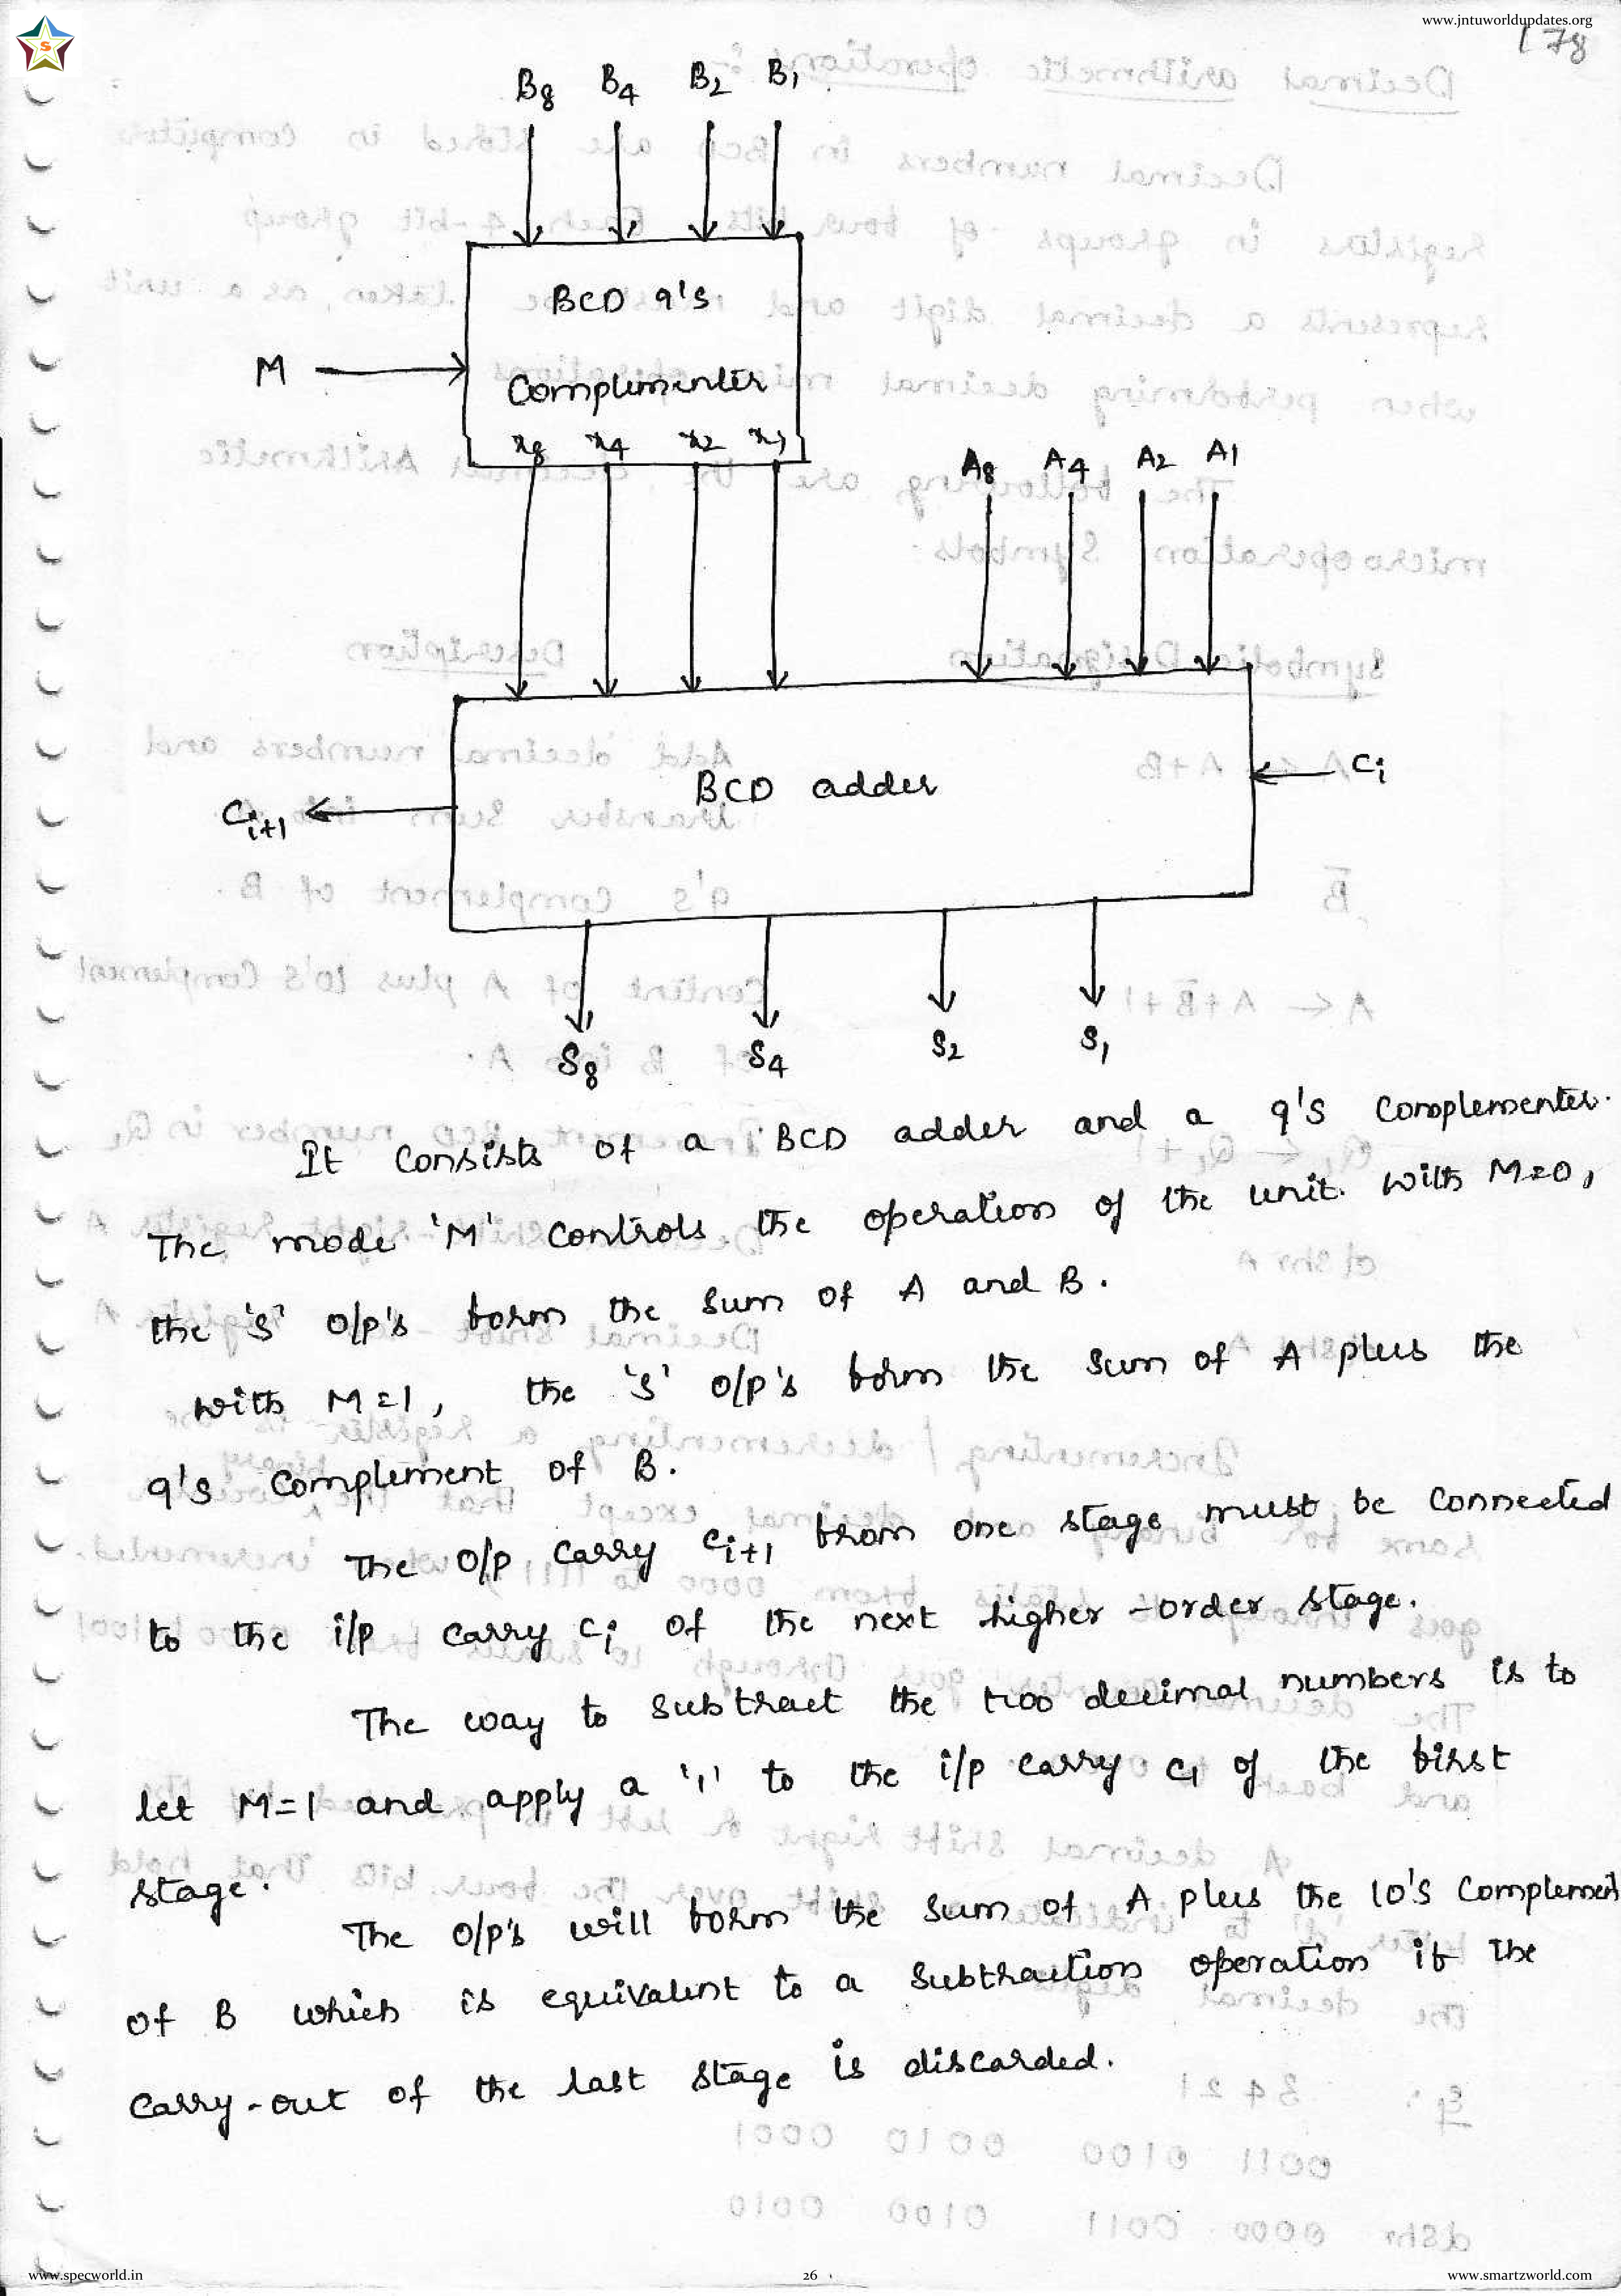 www.jntuworldupdates.org
178
S
B8 B4 B2 B1
BCD 9's
M
Complementer
x8 x4 x2 x1
A8 A4 A2 A1
BCD adder
Ci
Ci+1
S8 S4 S2 S1
It consists of a BCD adder and a 9's complementer.
The mode 'M' controls the operation of the unit. with M=0,
the 'S' o/p's form the sum of A and B.
with M=1, the 'S' o/p's form the sum of A plus the
9's complement of B.
The o/p carry Ci+1 from one stage must be connected
to the i/p carry Ci of the next higher-order stage.
The way to subtract the two decimal numbers is to
let M=1 and apply a '1' to the i/p carry C1 of the first
stage.
The o/p's will form the sum of A plus the 10's complement
of B which is equivalent to a subtraction operation if the
carry-out of the last stage is discarded.
www.specworld.in
26
www.smartzworld.com